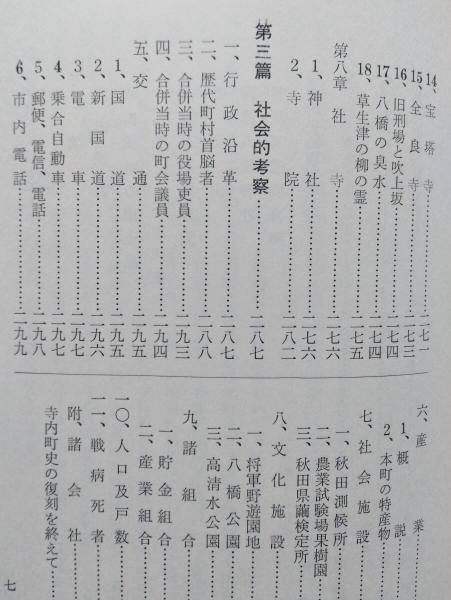 14、宝塔寺……………二七一
15、全良寺……………二七三
16、旧刑場と吹上坂……………二七四
17、八橋の臭水……………二七四
18、草生津の柳の霊……………二七五
第八章 社寺……………二七六
1、神社……………二七六
2、寺院……………二八二
第三篇 社会的考察……………二八七
一、行政沿革……………二八七
二、歴代町村首脳者……………二八八
三、合併当時の役場吏員……………二九三
四、合併当時の町会議員……………二九四
五、交通……………二九五
1、国道……………二九五
2、新国道……………二九六
3、電車……………二九七
4、乗合自動車……………二九七
5、郵便、電信、電話……………二九八
6、市内電話……………二九九
六、産業
1、概説
2、本町の特産物
七、社会施設
一、秋田測候所
二、農業試験場果樹園
三、秋田県繭検定所
八、文化施設
一、将軍野遊園地
二、八橋公園
三、高清水公園
九、諸組合
一、貯金組合
二、産業組合
一〇、人口及戸数
一一、戦病死者
附、諸会社
寺内町史の復刻を終えて
七